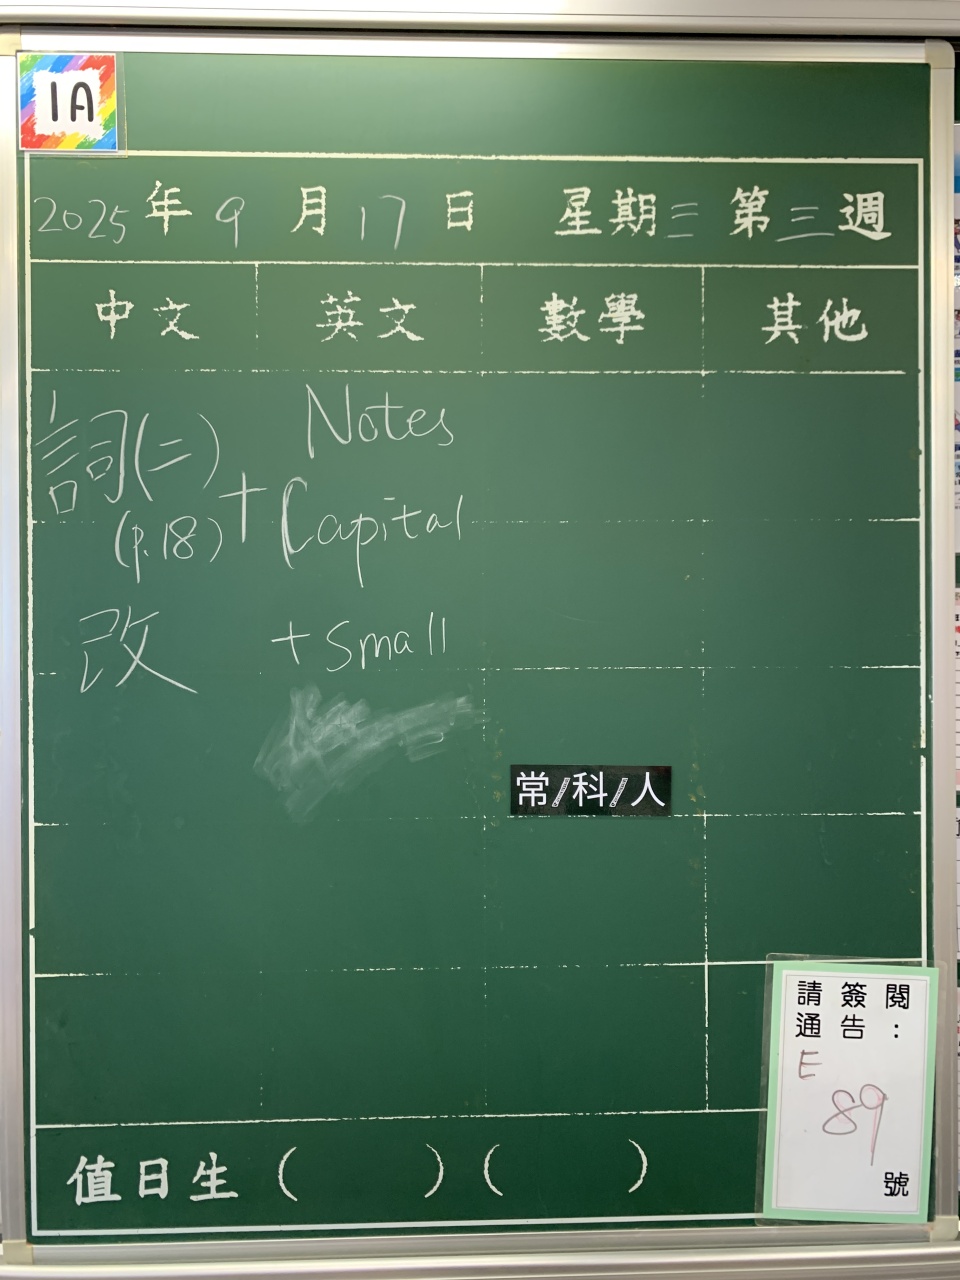 1A
2025年9月17日 星期三 第三週
中文 英文 數學 其他
詞(二)
(p.18)
改
Notes
+ Capital
+ small
常/科/人
請簽閱
通告:
E
89
號
值日生 ( ) ( )